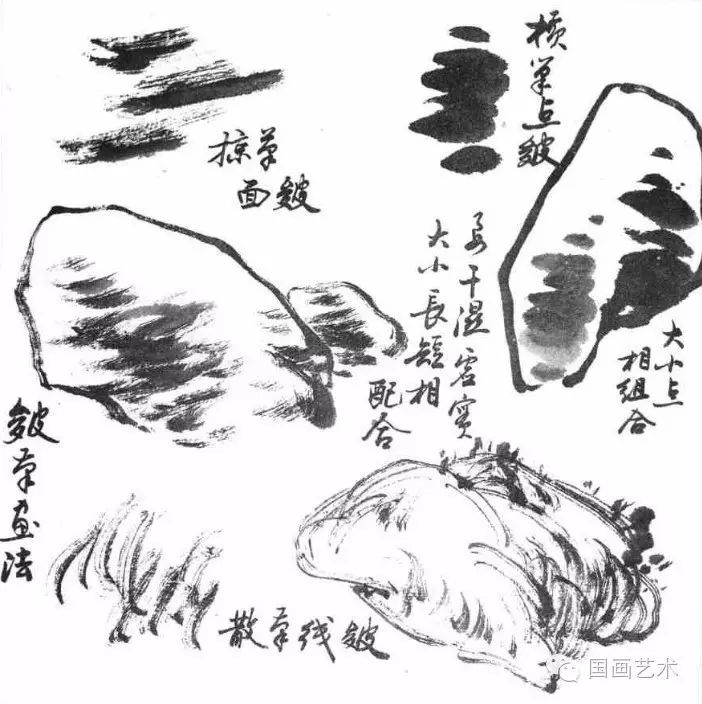 掠笔
面皴
横笔点皴
要干湿 密实
大小長短相
配合
大小点
相組合
皴笔画法
散笔线皴
国画艺术